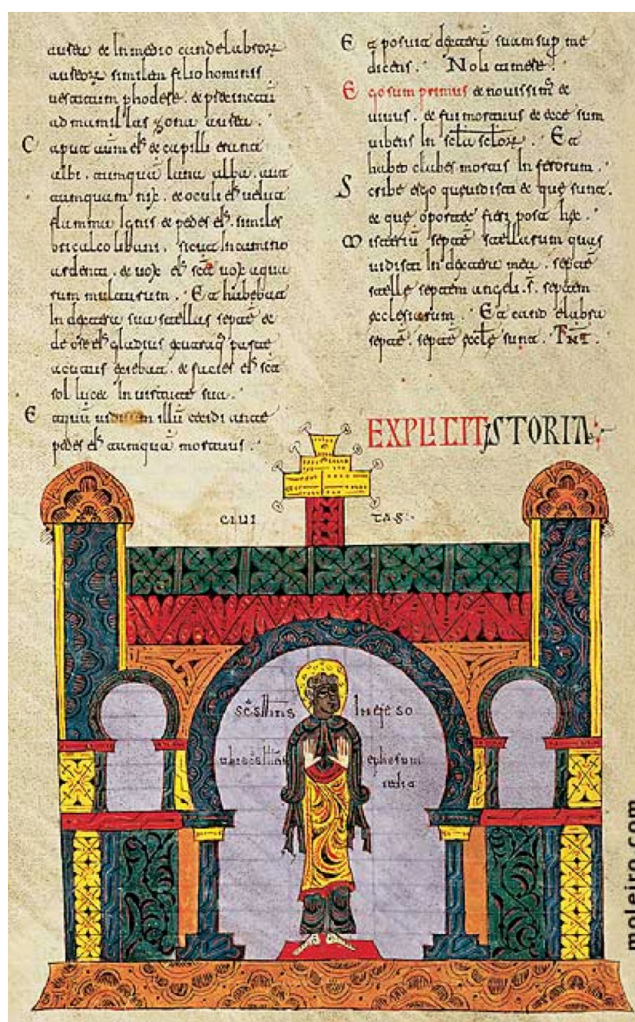 aurea & In medio candelabrorū
aureorū similem filio hominis
uestitum phodere. & precinctū
ad mamillas zona aurea.
Caput aūm eis & capilli erant
albi. tamquam lana alba. aut
tamquam nix. & oculi eis uelut
flamma Ignis & pedes eis similes
oricalco libani. sicut In camino
ardenti. & uox eis sct uox aqua
rum multarum. Et habebat
In dextera sua stellas septē &
de ore eis gladius parte
acutus exiebat. & facies eis sct
sol lucet In uirtute sua.
Et quū uidissem illū cecidi ante
pedes eis tamquā mortuus.
Et posuit dexterā suam sup me
dicens. Noli timere.
Ego sum primus & nouissimus &
uiuus. & fui mortuus & ecce sum
uibens In scla sclorū. Et
habeo clabes mortis & Inferorum.
Scribe ergo que uidisti & que sunt.
& que oportet fieri post hec.
Misteriū septē stellarum quas
uidisti In dextera mea. septē
stelle septem angeli. s. septem
ecclesiarum. Et candelabra
septē. septē eccle sunt.
EXPLICIT ISTORIA
CIUI TAS
scs Ihns